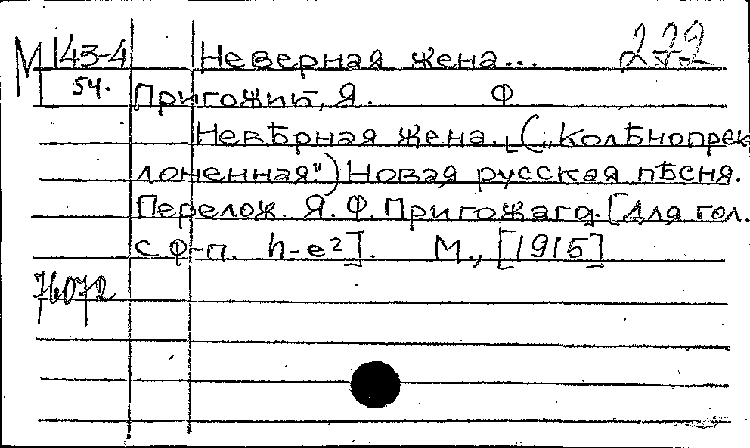 М 143-4 Неверная жена... 272
54. Пригожий, Я. Ф
Невѣрная жена. („Колѣнопрек
лоненная") Новая русская пѣсня.
Перелож. Я. Ф. Пригожаго. [Для гол.
с ф-п. h-e²]. М., [1915]
76072